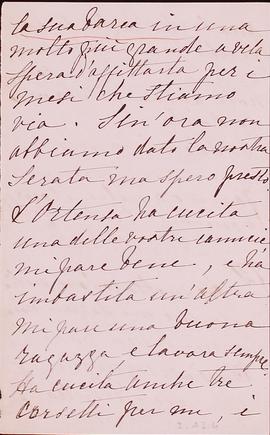 la sua barca in una
molto più grande a vela
spera d'affittarla per i
mesi che stiamo
via. Sin'ora non
abbiamo dato la nostra
serata ma spero presto.
L'Ortensa ha cucita
una delle vostre camicie
mi pare bene, e ha
imbastita un'altra
mi pare una buona
ragazza, e lavora sempre.
Ha cucita anche tre
corsetti per me, e